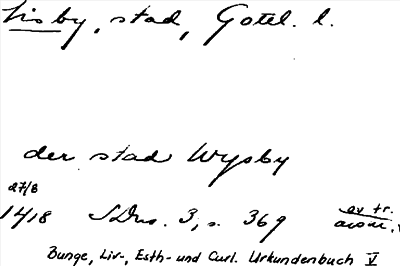 Visby, stad, Gotel. l.
der stad Wysby
27/8
1418 SDns. 3, s. 369 ev tr.
Bunge, Liv-, Esth- und Curl. Urkundenbuch V